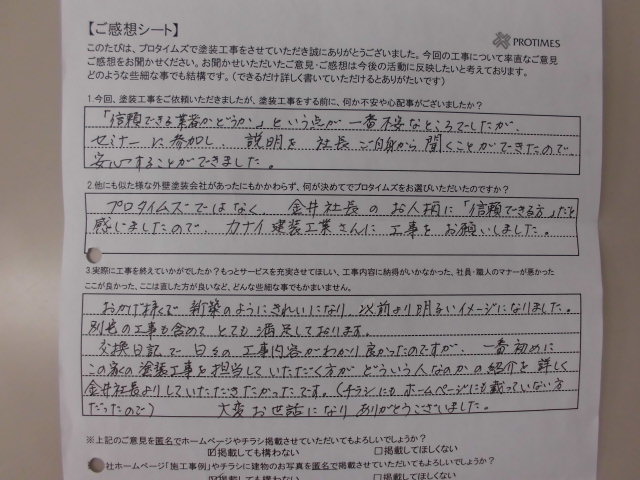 【ご感想シート】
PROTIMES
このたびは、プロタイムズで塗装工事をさせていただき誠にありがとうございました。今回の工事について率直なご意見
ご感想をお聞かせください。お聞かせいただいたご意見・ご感想は今後の活動に反映したいと考えております。
どのような些細な事でも結構です。(できるだけ詳しく書いていただけるとありがたいです)
1.今回、塗装工事をご依頼いただきましたが、塗装工事をする前に、何か不安や心配事がございましたか?
「信頼できる業者かどうか」という点が一番不安なところでしたが、
セミナーに参加し、説明を社長ご自身から聞くことができたので、
安心することができました。
2.他にも似た様な外壁塗装会社があったにもかかわらず、何が決めてでプロタイムズをお選びいただいたのですか?
プロタイムズではなく、金井社長のお人柄に「信頼できる方」だと
感じましたので、カナイ建装工業さんに工事をお願いしました。
3.実際に工事を終えていかがでしたか?もっとサービスを充実させてほしい、工事内容に納得がいかなかった、社員・職人のマナーが悪かった
ここが良かった、ここは直した方が良いなど、どんな些細な事でもかまいません。
おかげ様で新築のようにきれいになり、以前より明るいイメージになりました。
別途の工事も含めて、とても満足しております。
交換日記で日々の工事内容がわかり良かったのですが、一番初めに
この家の塗装工事を担当していただく方がどういう人なのかの紹介を詳しく
金井社長よりしていただきたかったです。(チラシにもホームページにも載っていない方
だったので) 大変お世話になりありがとうございました。
※上記のご意見を匿名でホームページやチラシ掲載させていただいてもよろしいでしょうか?
☑掲載しても構わない □掲載してほしくない
社ホームページ「施工事例」やチラシに建物のお写真を匿名で掲載させていただいてもよろしいでしょうか?
☑掲載しても構わない □掲載してほしくない